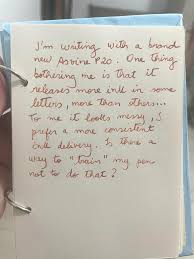 I'm writing with a brand
new Asvine P20. One thing
bothering me is that it
releases more ink in some
letters, more than others...
To me it looks messy, I
prefer a more consistent
ink delivery. Is there a
way to "train" my pen
not to do that?